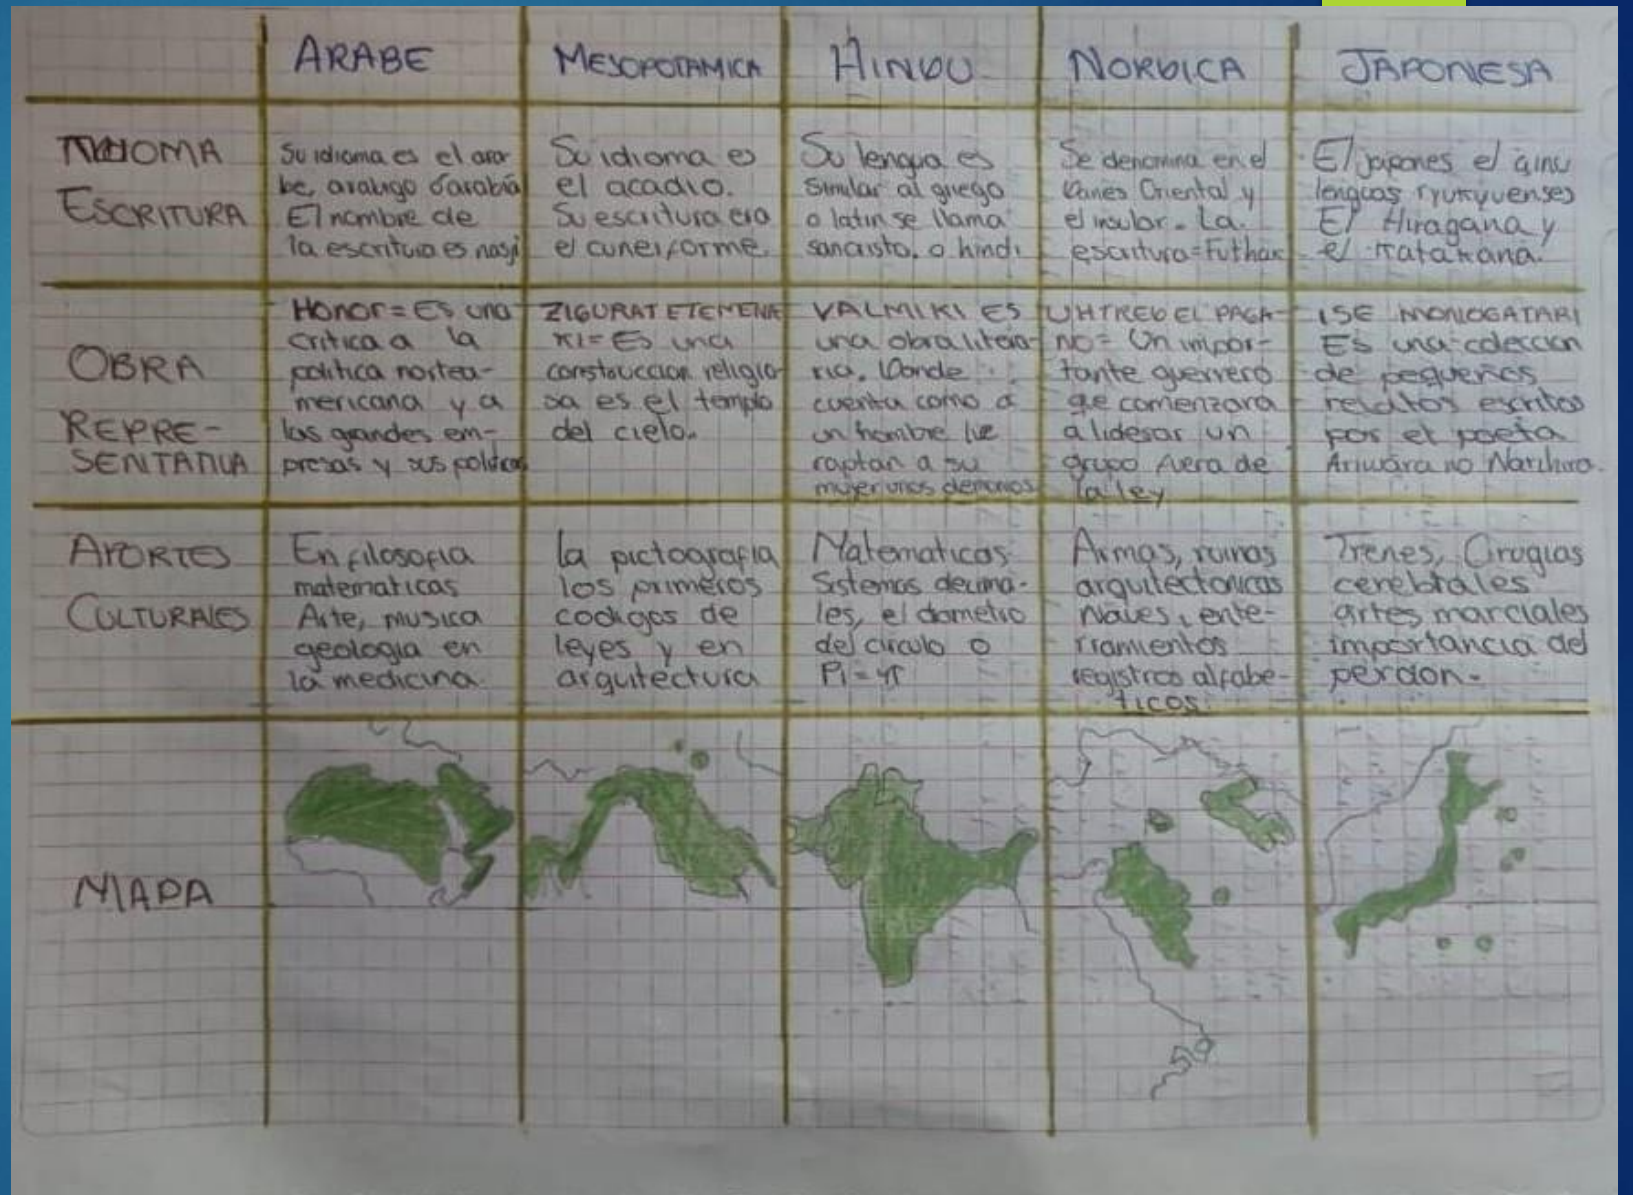 ARABE
MESOPOTAMICA
HINDU
NORDICA
JAPONESA
IDIOMA
ESCRITURA
Su idioma es el ara
be, arabigo o arabia
El nombre de
la escritura es nasji
Su idioma es
el acadio.
Su escritura era
el cuneiforme.
Su lengua es
similar al griego
o latin se llama
sancristo, o hindi
Se denomina en el
Danes Oriental y
el insular. La
escritura=Futhar
El japones el ainu
lenguas ryukyuenses
El Hiragana y
el Katakana.
OBRA
REPRE-
SENTATIVA
Honor= Es una
critica a la
politica nortea-
mericana y a
las grandes em-
presas y sus politicas
ZIGURAT ETEMENA
KI= Es una
construccion religio
sa es el templo
del cielo.
VALMIKI ES
una obra litera-
ria. Donde
cuenta como a
un hombre le
raptan a su
mujer unos demonios
UHTRED EL PAGA-
NO= Un impor-
tante guerrero
que comenzara
a lidesar un
grupo fuera de
la ley
ISE MONOGATARI
Es una coleccion
de pequeños
relatos escritos
por el poeta
Ariwara no Narihira.
APORTES
CULTURALES
En filosofia
matematicas
Arte, musica
geologia en
la medicina.
La pictografia
los primeros
codigos de
leyes y en
arquitectura
Matematicas
Sistemas decima-
les, el diametro
del circulo o
Pi = π
Armas, runas
arquitectonicas
Naves, ente-
rramientos
registros alfabe-
ticos.
Trenes, Cirugias
cerebrales
artes marciales
importancia del
perdon.
MAPA